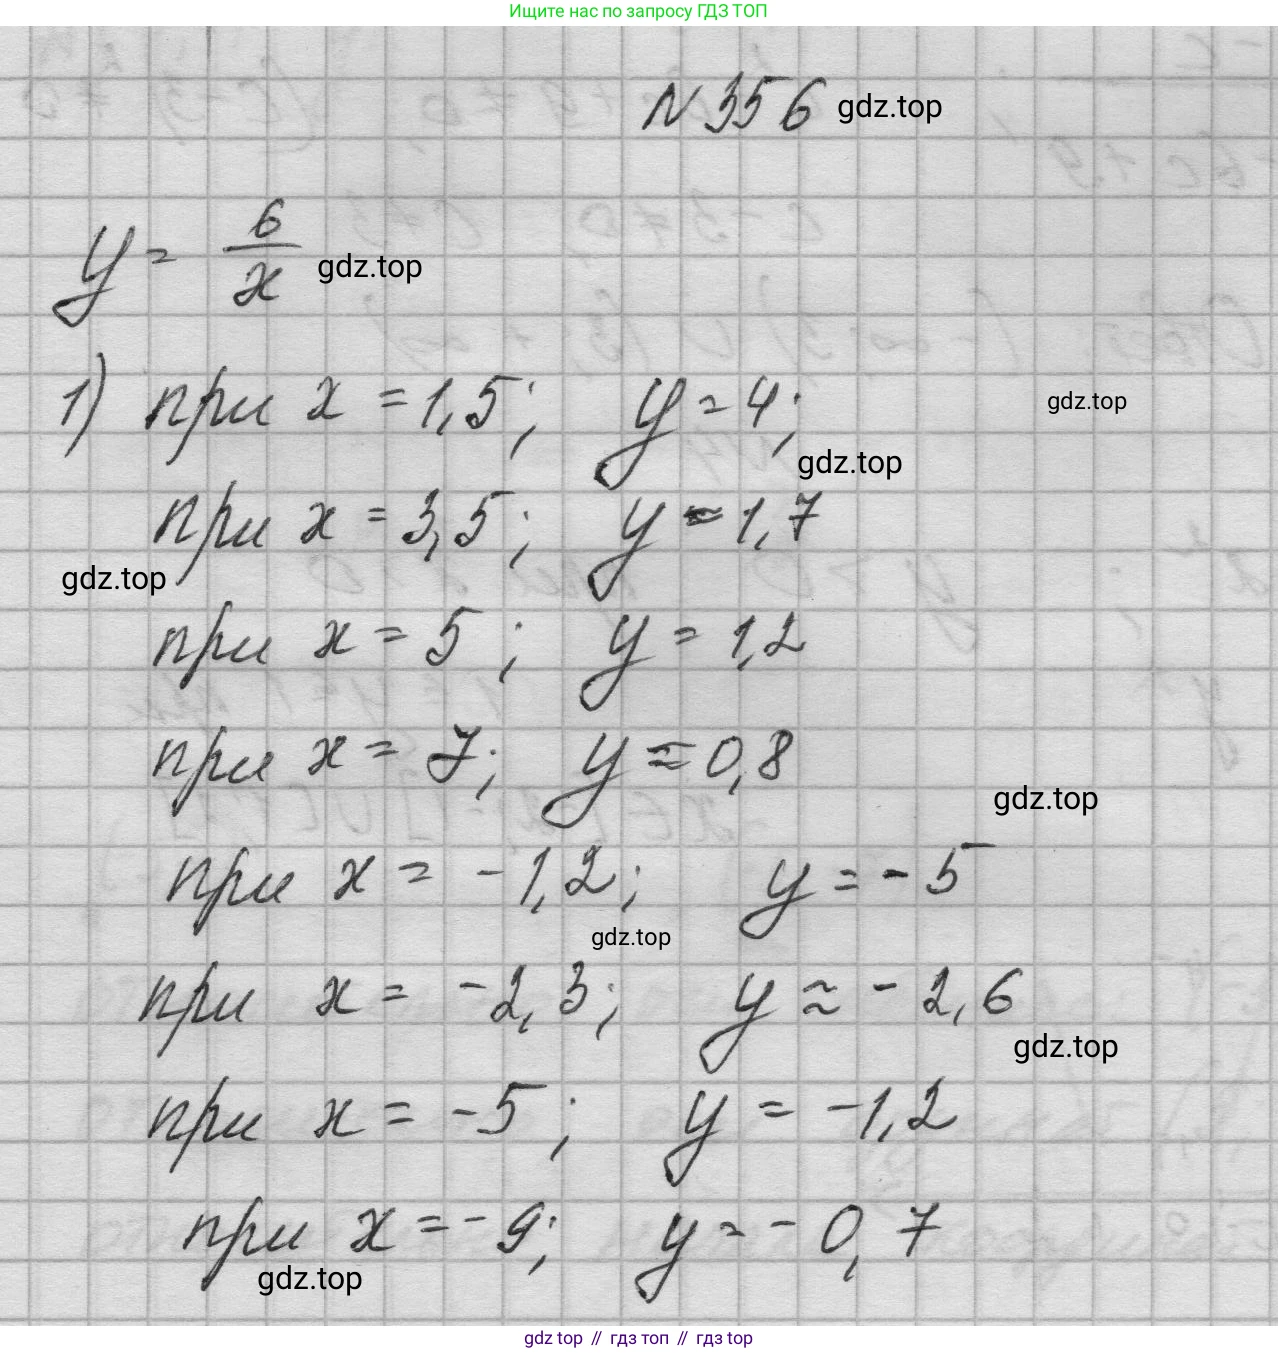 Ищите нас по запросу ГДЗ ТОП
N 356 gdz.top
y = 6/x gdz.top
1) при x = 1,5; y = 4; gdz.top
gdz.top
при x = 3,5; y ≈ 1,7
gdz.top
при x = 5; y = 1,2
при x = 7; y ≈ 0,8
gdz.top
при x = -1,2; y = -5
gdz.top
при x = -2,3; y ≈ -2,6
gdz.top
при x = -5; y = -1,2
при x = -9; y = -0,7
gdz.top
gdz top // гдз топ // гдз top